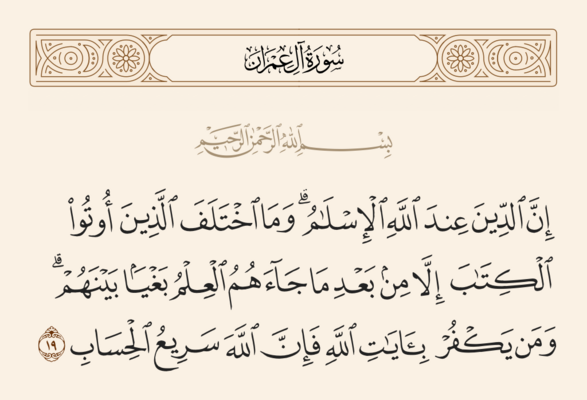 سُورَةُ آلِ عِمْرَان
بِسْمِ ٱللَّهِ ٱلرَّحْمَٰنِ ٱلرَّحِيمِ
إِنَّ ٱلدِّينَ عِندَ ٱللَّهِ ٱلْإِسْلَٰمُ ۗ وَمَا ٱخْتَلَفَ ٱلَّذِينَ أُوتُوا۟
ٱلْكِتَٰبَ إِلَّا مِنۢ بَعْدِ مَا جَآءَهُمُ ٱلْعِلْمُ بَغْيًۢا بَيْنَهُمْ ۗ
وَمَن يَكْفُرْ بِـَٔايَٰتِ ٱللَّهِ فَإِنَّ ٱللَّهَ سَرِيعُ ٱلْحِسَابِ ١٩